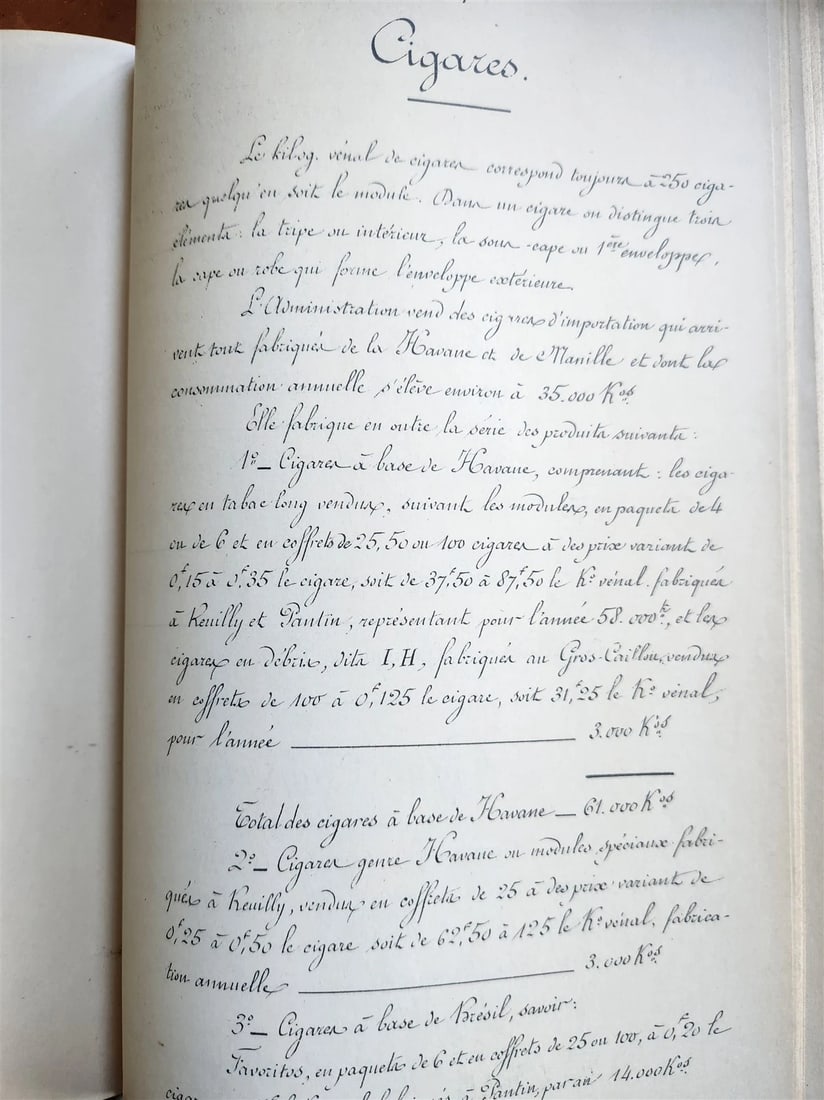 Cigares.
Le kilog. vénal de cigares correspond toujours à 250 ciga-
res quelqu'en soit le module. Dans un cigare on distingue trois
éléments : la tripe ou intérieur, la sous-cape ou 1ère enveloppe,
la cape ou robe qui forme l'enveloppe extérieure.
L'Administration vend des cigares d'importation qui arri-
vent tout fabriqués de la Havane et de Manille et dont la
consommation annuelle s'élève environ à 35.000 Kos
Elle fabrique en outre la série des produits suivants :
1o_ Cigares à base de Havane, comprenant : les ciga-
res en tabac long vendus, suivant les modules, en paquets de 4
ou de 6 et en coffrets de 25, 50 ou 100 cigares à des prix variant de
0f,15 à 0f,35 le cigare, soit de 37f,50 à 87f,50 le Ko vénal. fabriqués
à Reuilly et Pantin, représentant pour l'année 58.000k, et les
cigares en débris, dits I, H, fabriqués au Gros-Caillou, vendus
en coffrets de 100 à 0f,125 le cigare, soit 31f,25 le Ko vénal,
pour l'année _____ 3.000 Kos
Total des cigares à base de Havane _ 61.000 Kos
2o_ Cigares genre Havane ou modules spéciaux fabri-
qués à Reuilly, vendus en coffrets de 25 à des prix variant de
0f,25 à 0f,50 le cigare soit de 62f,50 à 125 le Ko vénal, fabrica-
tion annuelle _____ 3.000 Kos
3o_ Cigares à base de Brésil, savoir :
Favoritos, en paquets de 6 et en coffrets de 25 ou 100, à 0f,20 le
à Pantin, par an 14.000 Kos